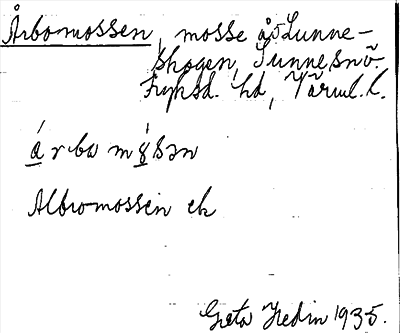 Årbomossen, mosse å Lunne-
skogen, Sunne sn ö.
Fryksd. hd, Värml. l.
árbo mósən
Albromossen ek
Greta Hedin 1935.